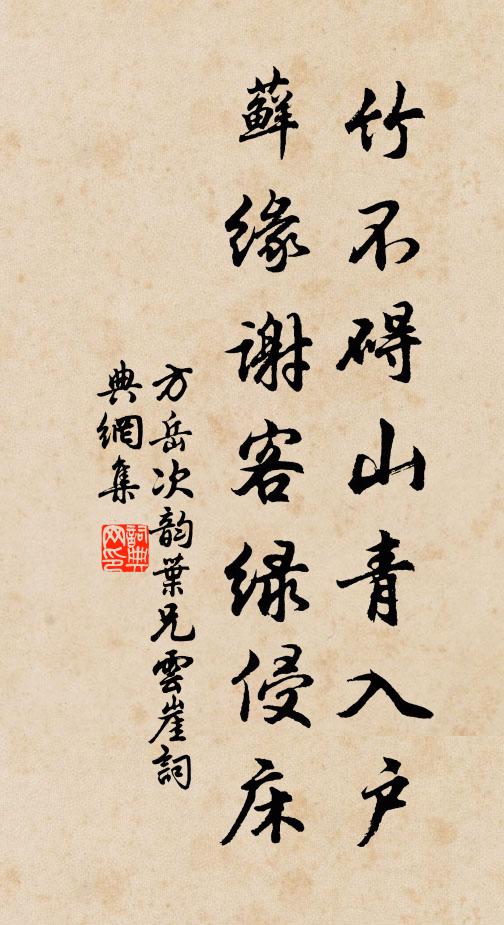 竹不碍山青入户
蘚缘谢客绿侵床
方岳次韵葉兄雲崖詞
典網集
詞典網印